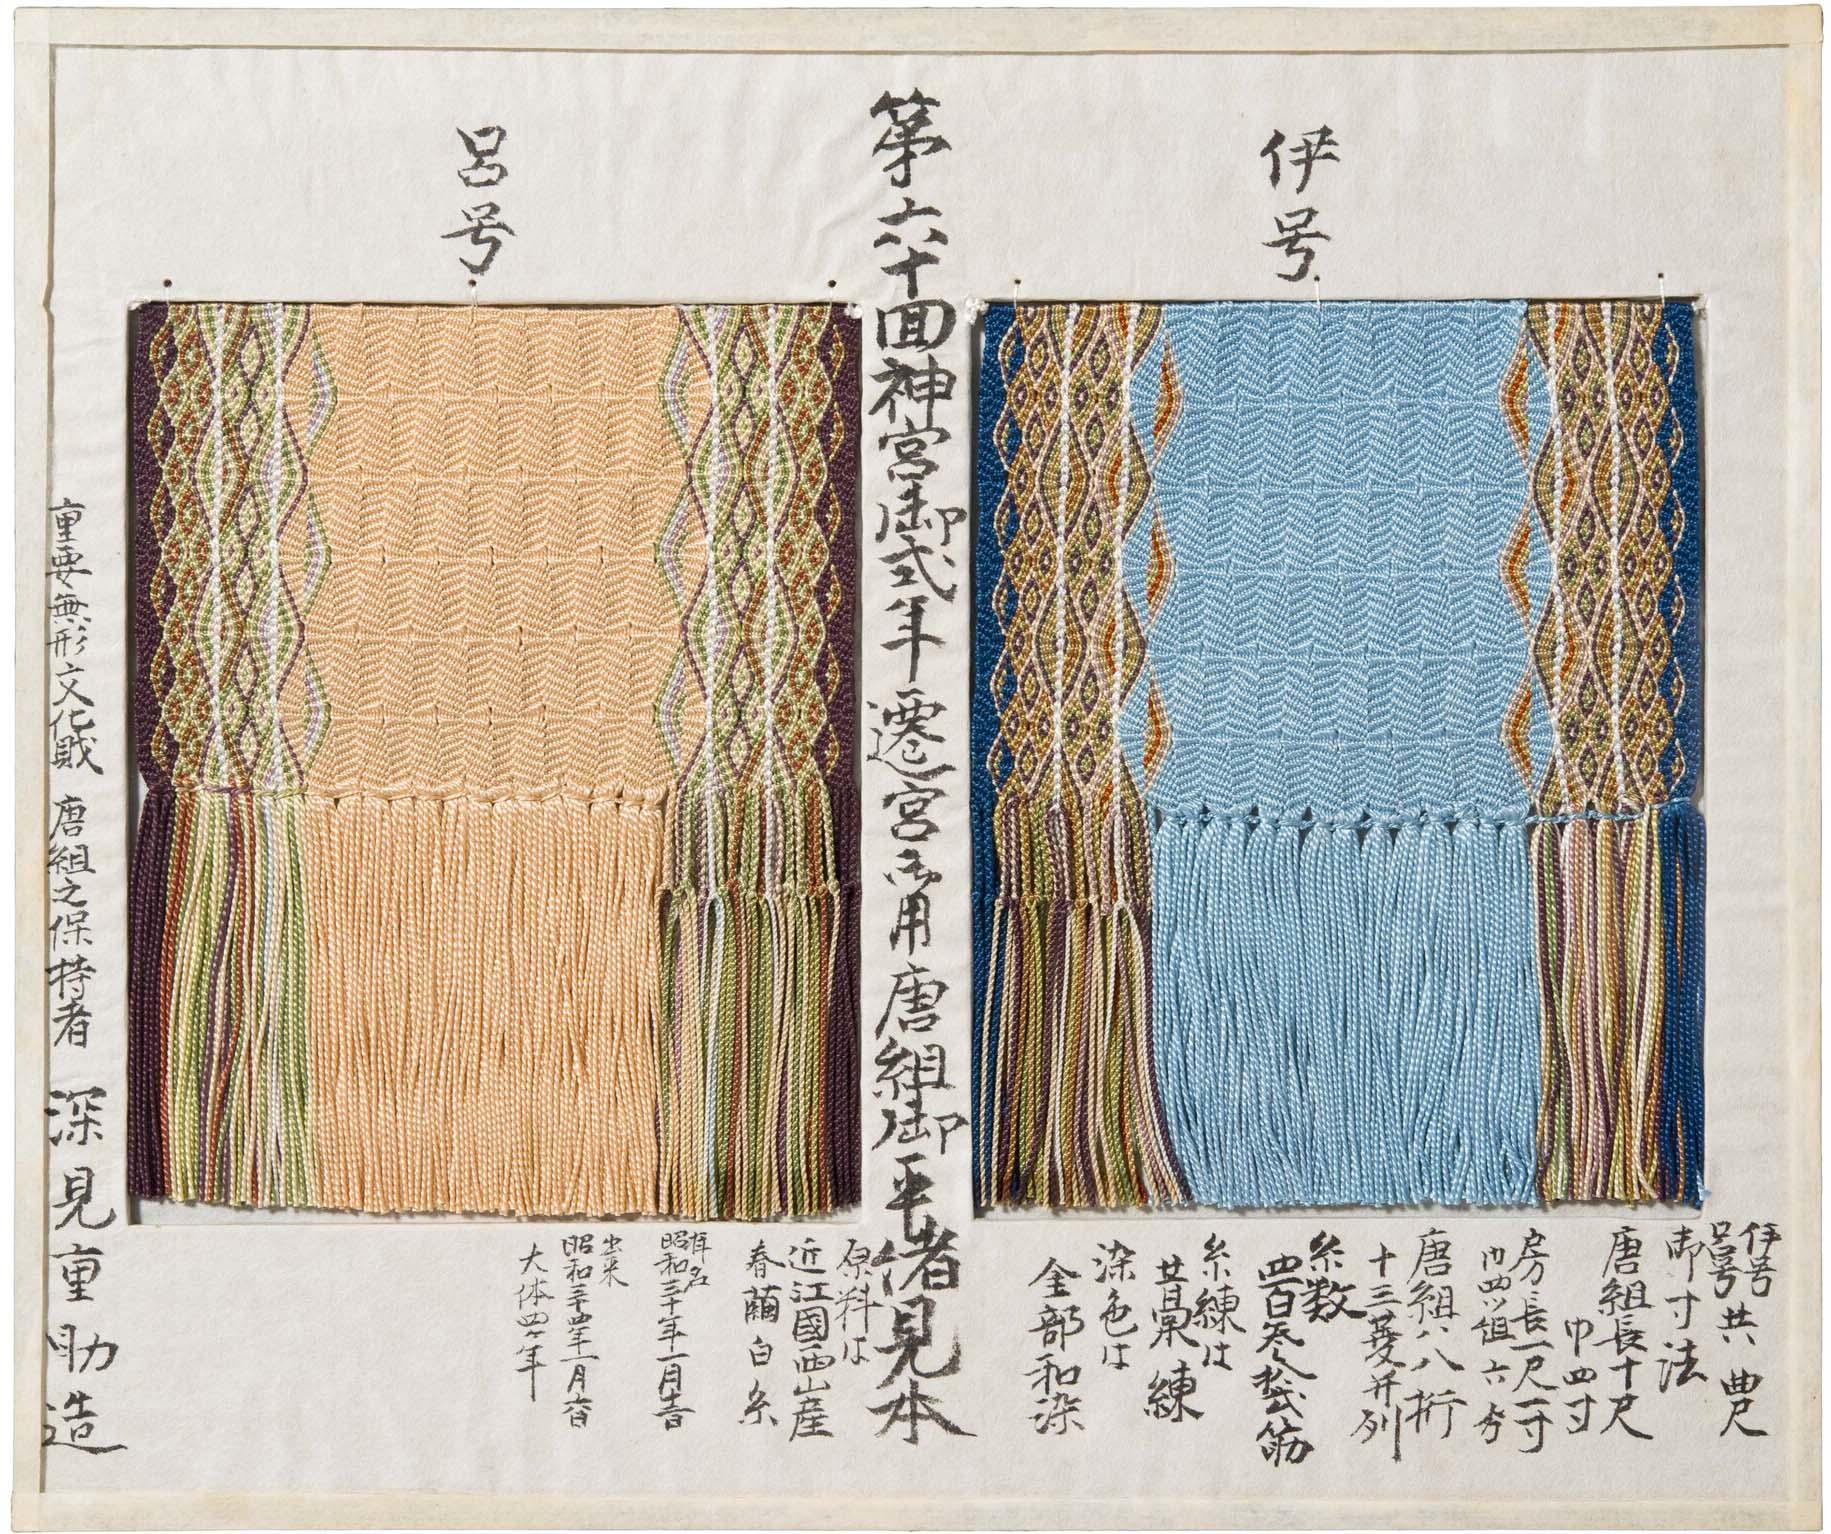 伊号
第六十回神宮御式年遷宮御用唐組御平緒見本
呂号
伊号
呂号共 曲尺
御寸法
唐組長十尺
巾四寸
房長一尺一寸
唐組八八桁
十三菱并列
糸数
糸練は
藁練
染色は
全部和染
原料は
近江國西山産
春繭白糸
昭和三十年一月
出来
昭和三十四年一月六日
大体四ヶ年
重要無形文化財 唐組之保持者 深見重助造